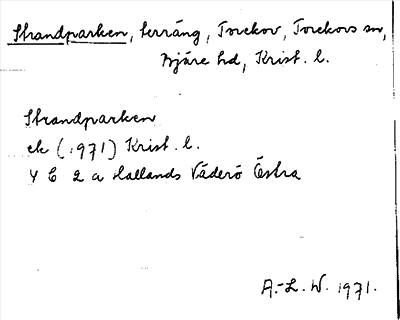 Strandparken, terräng, Torekov, Torekovs sn,
Bjäre hd, Krist. l.
Strandparken
ek (1971) Krist. l.
4 C 2 a Hallands Väderö Östra
A.-L. W. 1971.